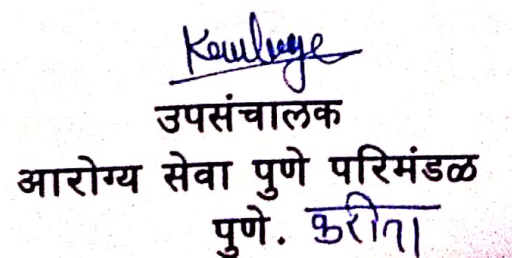 उपसंचालक
आरोग्य सेवा पुणे परिमंडळ
पुणे. करीता